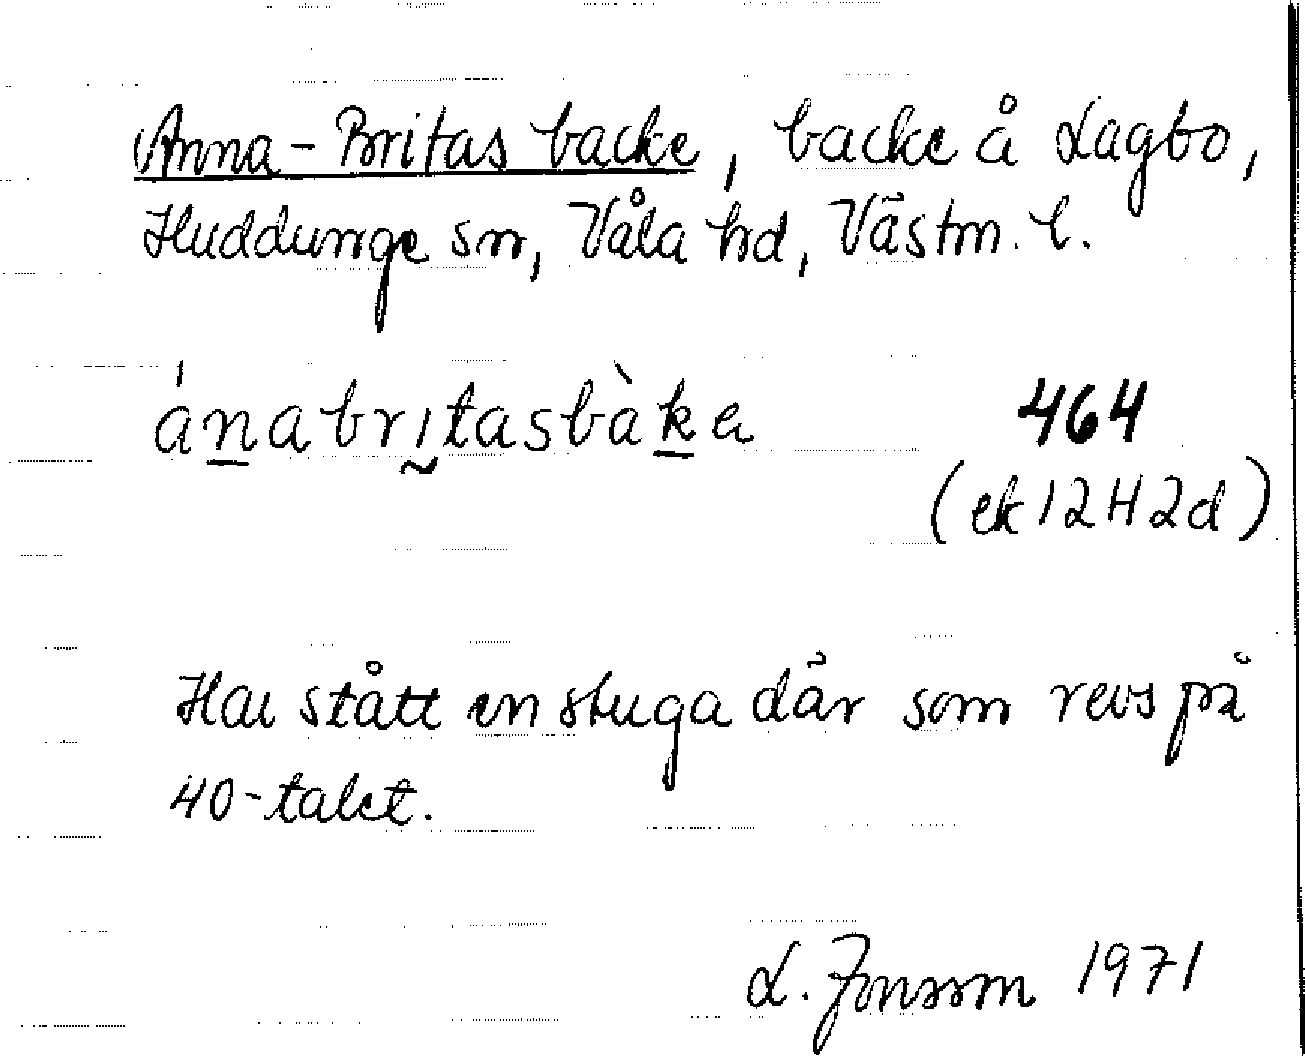 Anna-Britas backe, backe å Lagbo,
Huddunge sn, Våla hd, Västm. l.
ánabrı̰tasbàka 464
(ek 12H2d)
Har stått en stuga där som revs på
40-talet.
L. Jonsson 1971